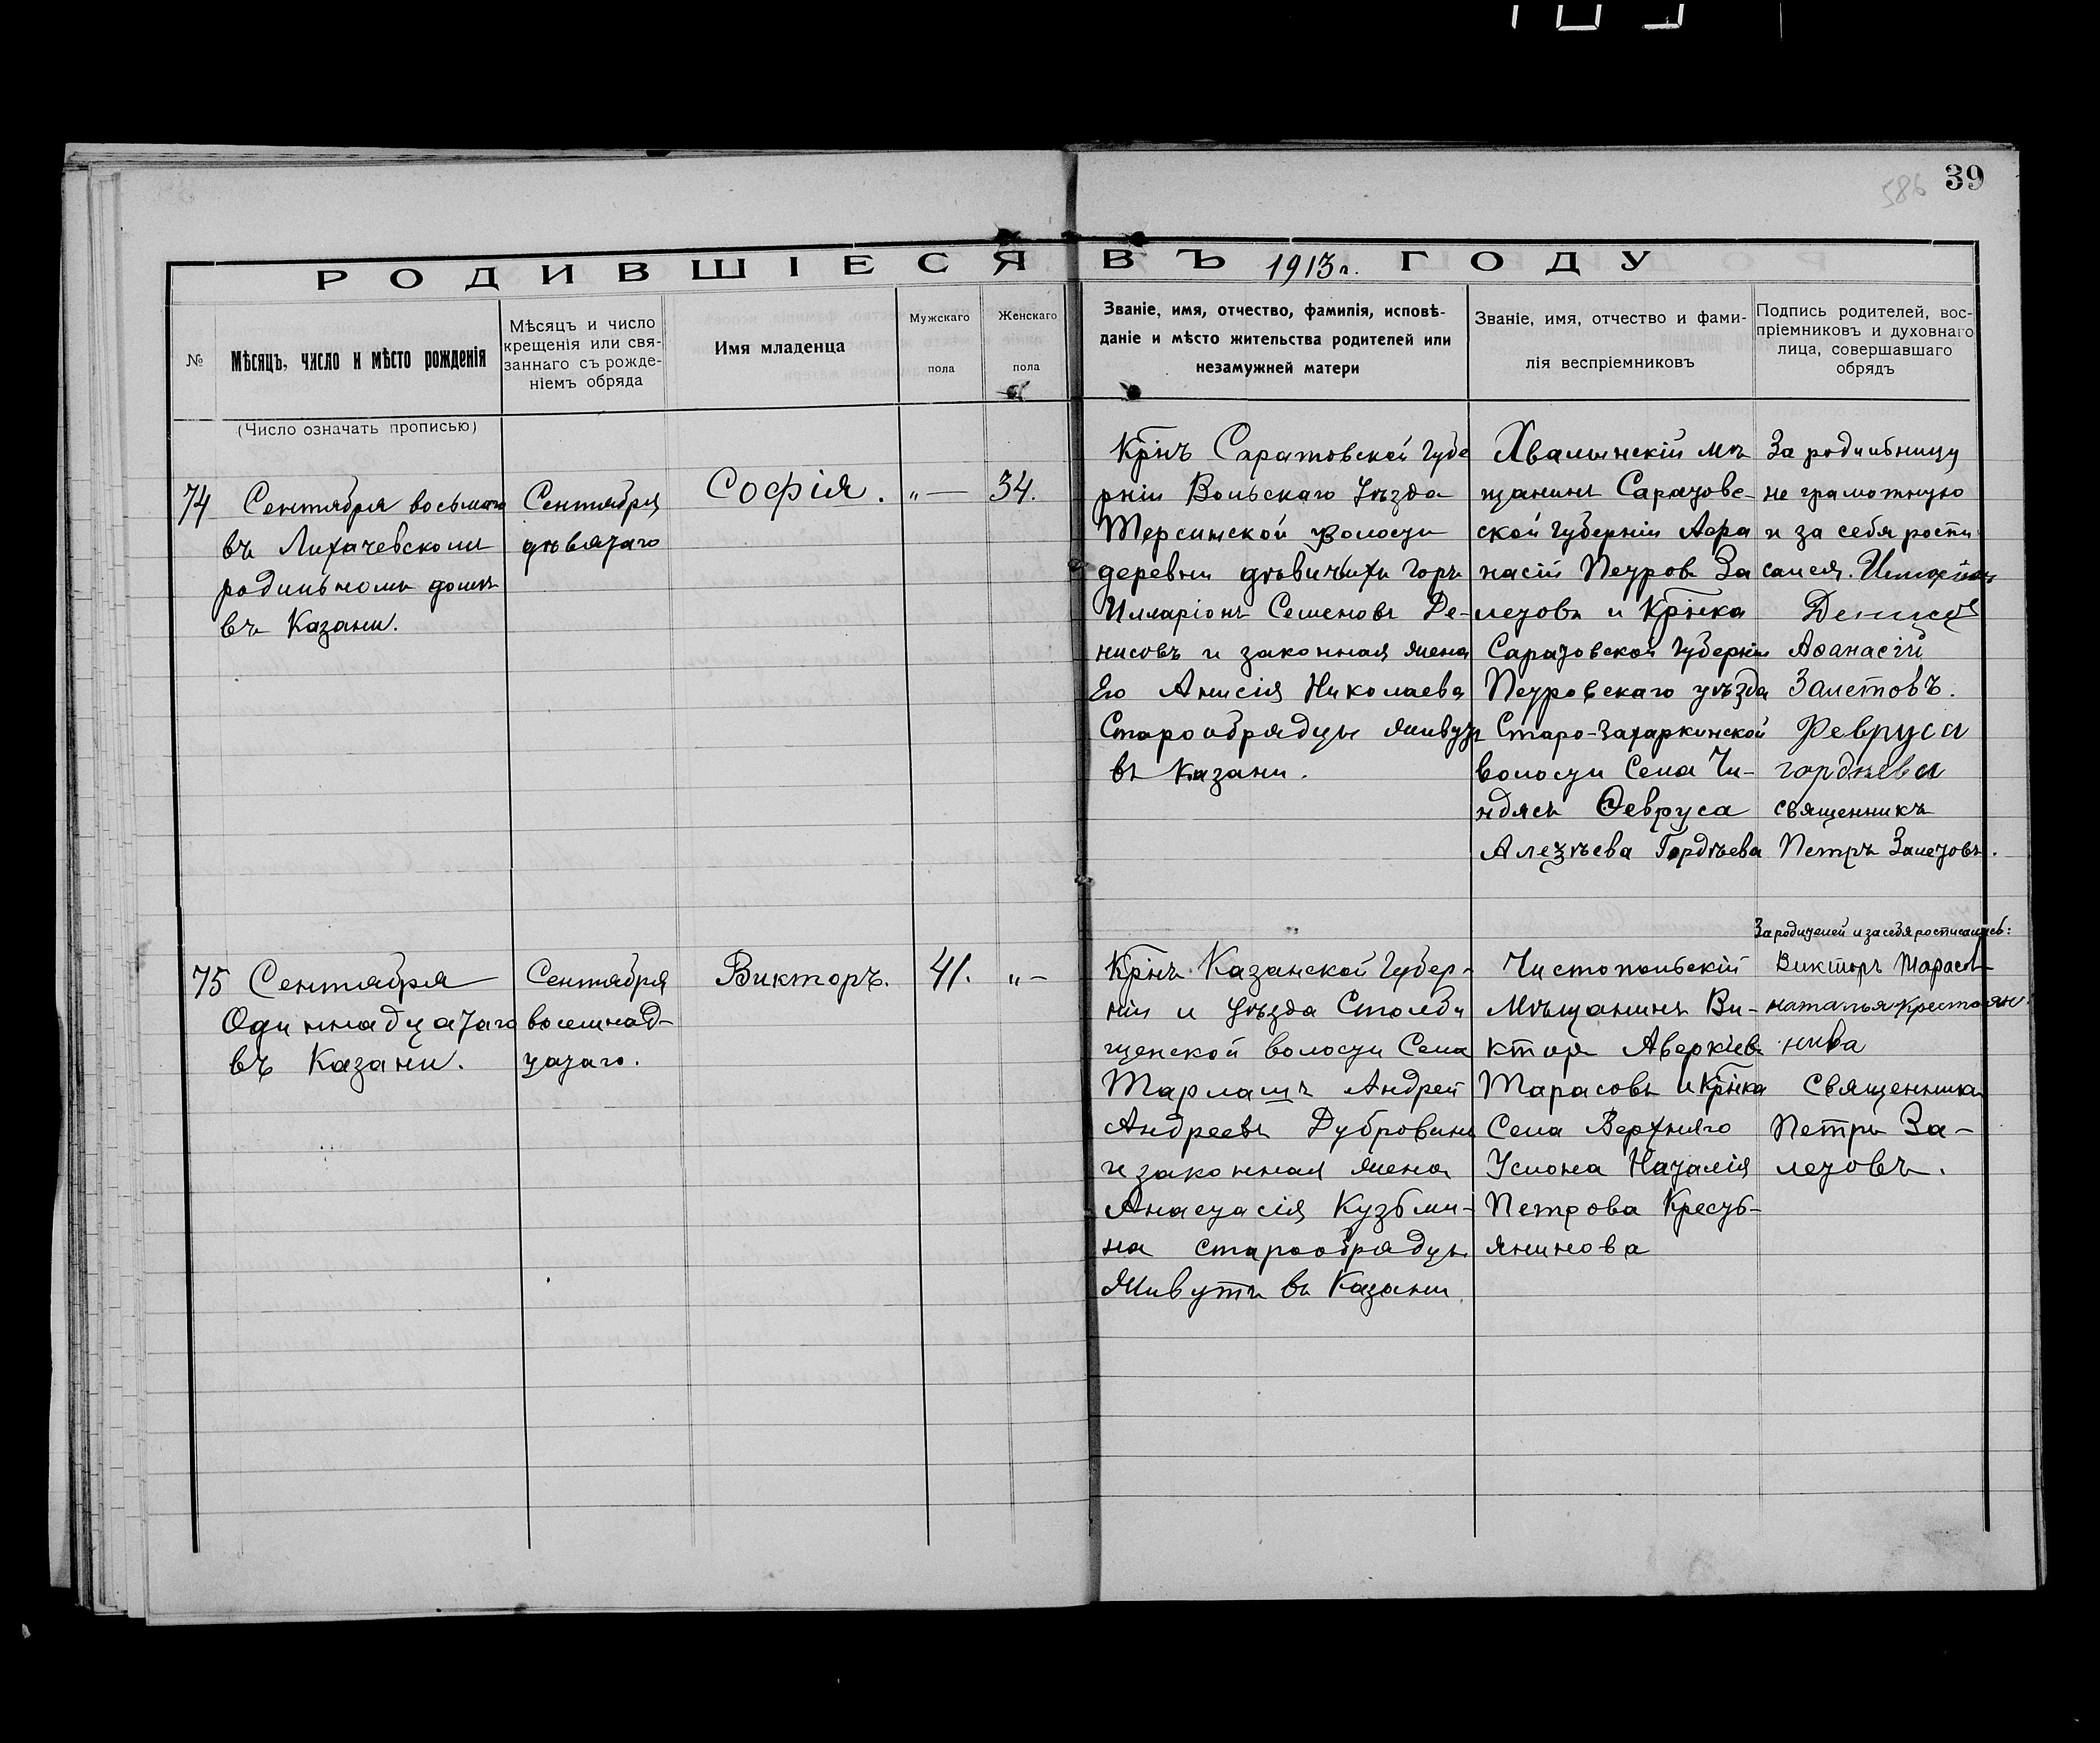 39
586
РОДИВШІЕСЯ ВЪ 1913 г. ГОДУ
№
Мѣсяцъ, число и мѣсто рожденія
Мѣсяцъ и число
крещенія или свя-
заннаго съ рожде-
ніемъ обряда
Имя младенца
Мужскаго
пола
Женскаго
пола
Званіе, имя, отчество, фамилія, исповѣ-
даніе и мѣсто жительства родителей или
незамужней матери
Званіе, имя, отчество и фами-
лія веспріемниковъ
Подпись родителей, вос-
пріемниковъ и духовнаго
лица, совершавшаго
обрядъ
(Число означать прописью)
74
Сентября восьмаго
въ Лихачевскомъ
родильномъ домѣ
въ Казани.
Сентября
дѣвятаго
Софія.
"—
34.
Крнъ Саратовской Губе
рніи Вольскаго Уѣзда
Терсинской Волости
деревни дѣвичьихъ Горъ
Илларіонъ Семеновъ Де-
нисовъ и законная жена
Его Анисія Николаева
Старообрядцы живутъ
въ Казани.
Хвалынскій мѣ
щанинъ Саратовс-
кой губерніи Афа
насій Петровъ За
летовъ и Крнка
Саратовской Губерніи
Петровскаго уѣзда
Старо-Захаркинской
волости Села Чи-
ндясъ Ѳевруса
Алексѣева Гордѣева
За родильницу
не грамотную
и за себя роспи
сался. Иларіонъ
Денисов
Афанасій
Залетовъ.
Февруса
гордѣева
священникъ
Петръ Залетовъ.
75
Сентября
Одиннадцатаго
въ Казани.
Сентября
восемнад-
цатаго.
Викторъ.
41.
"-
Крнъ Казанской Губер-
ніи и Уѣзда Столби
щенской волости Села
Тарлашъ Андрей
Андреевъ Дубровинъ
и законная жена
Анастасія Кузьми-
на старообрядцы
Живутъ въ Казани
Чистопольскій
Мѣщанинъ Ви-
кторъ Аверкіевъ
Тарасовъ и Крнка
Села Верхняго
Услона Наталія
Петрова Кресть-
янинова
За родителей и за себя росписались:
Викторъ Тарасов
наталья крестьян
нива
Священникъ
Петръ За-
летовъ.